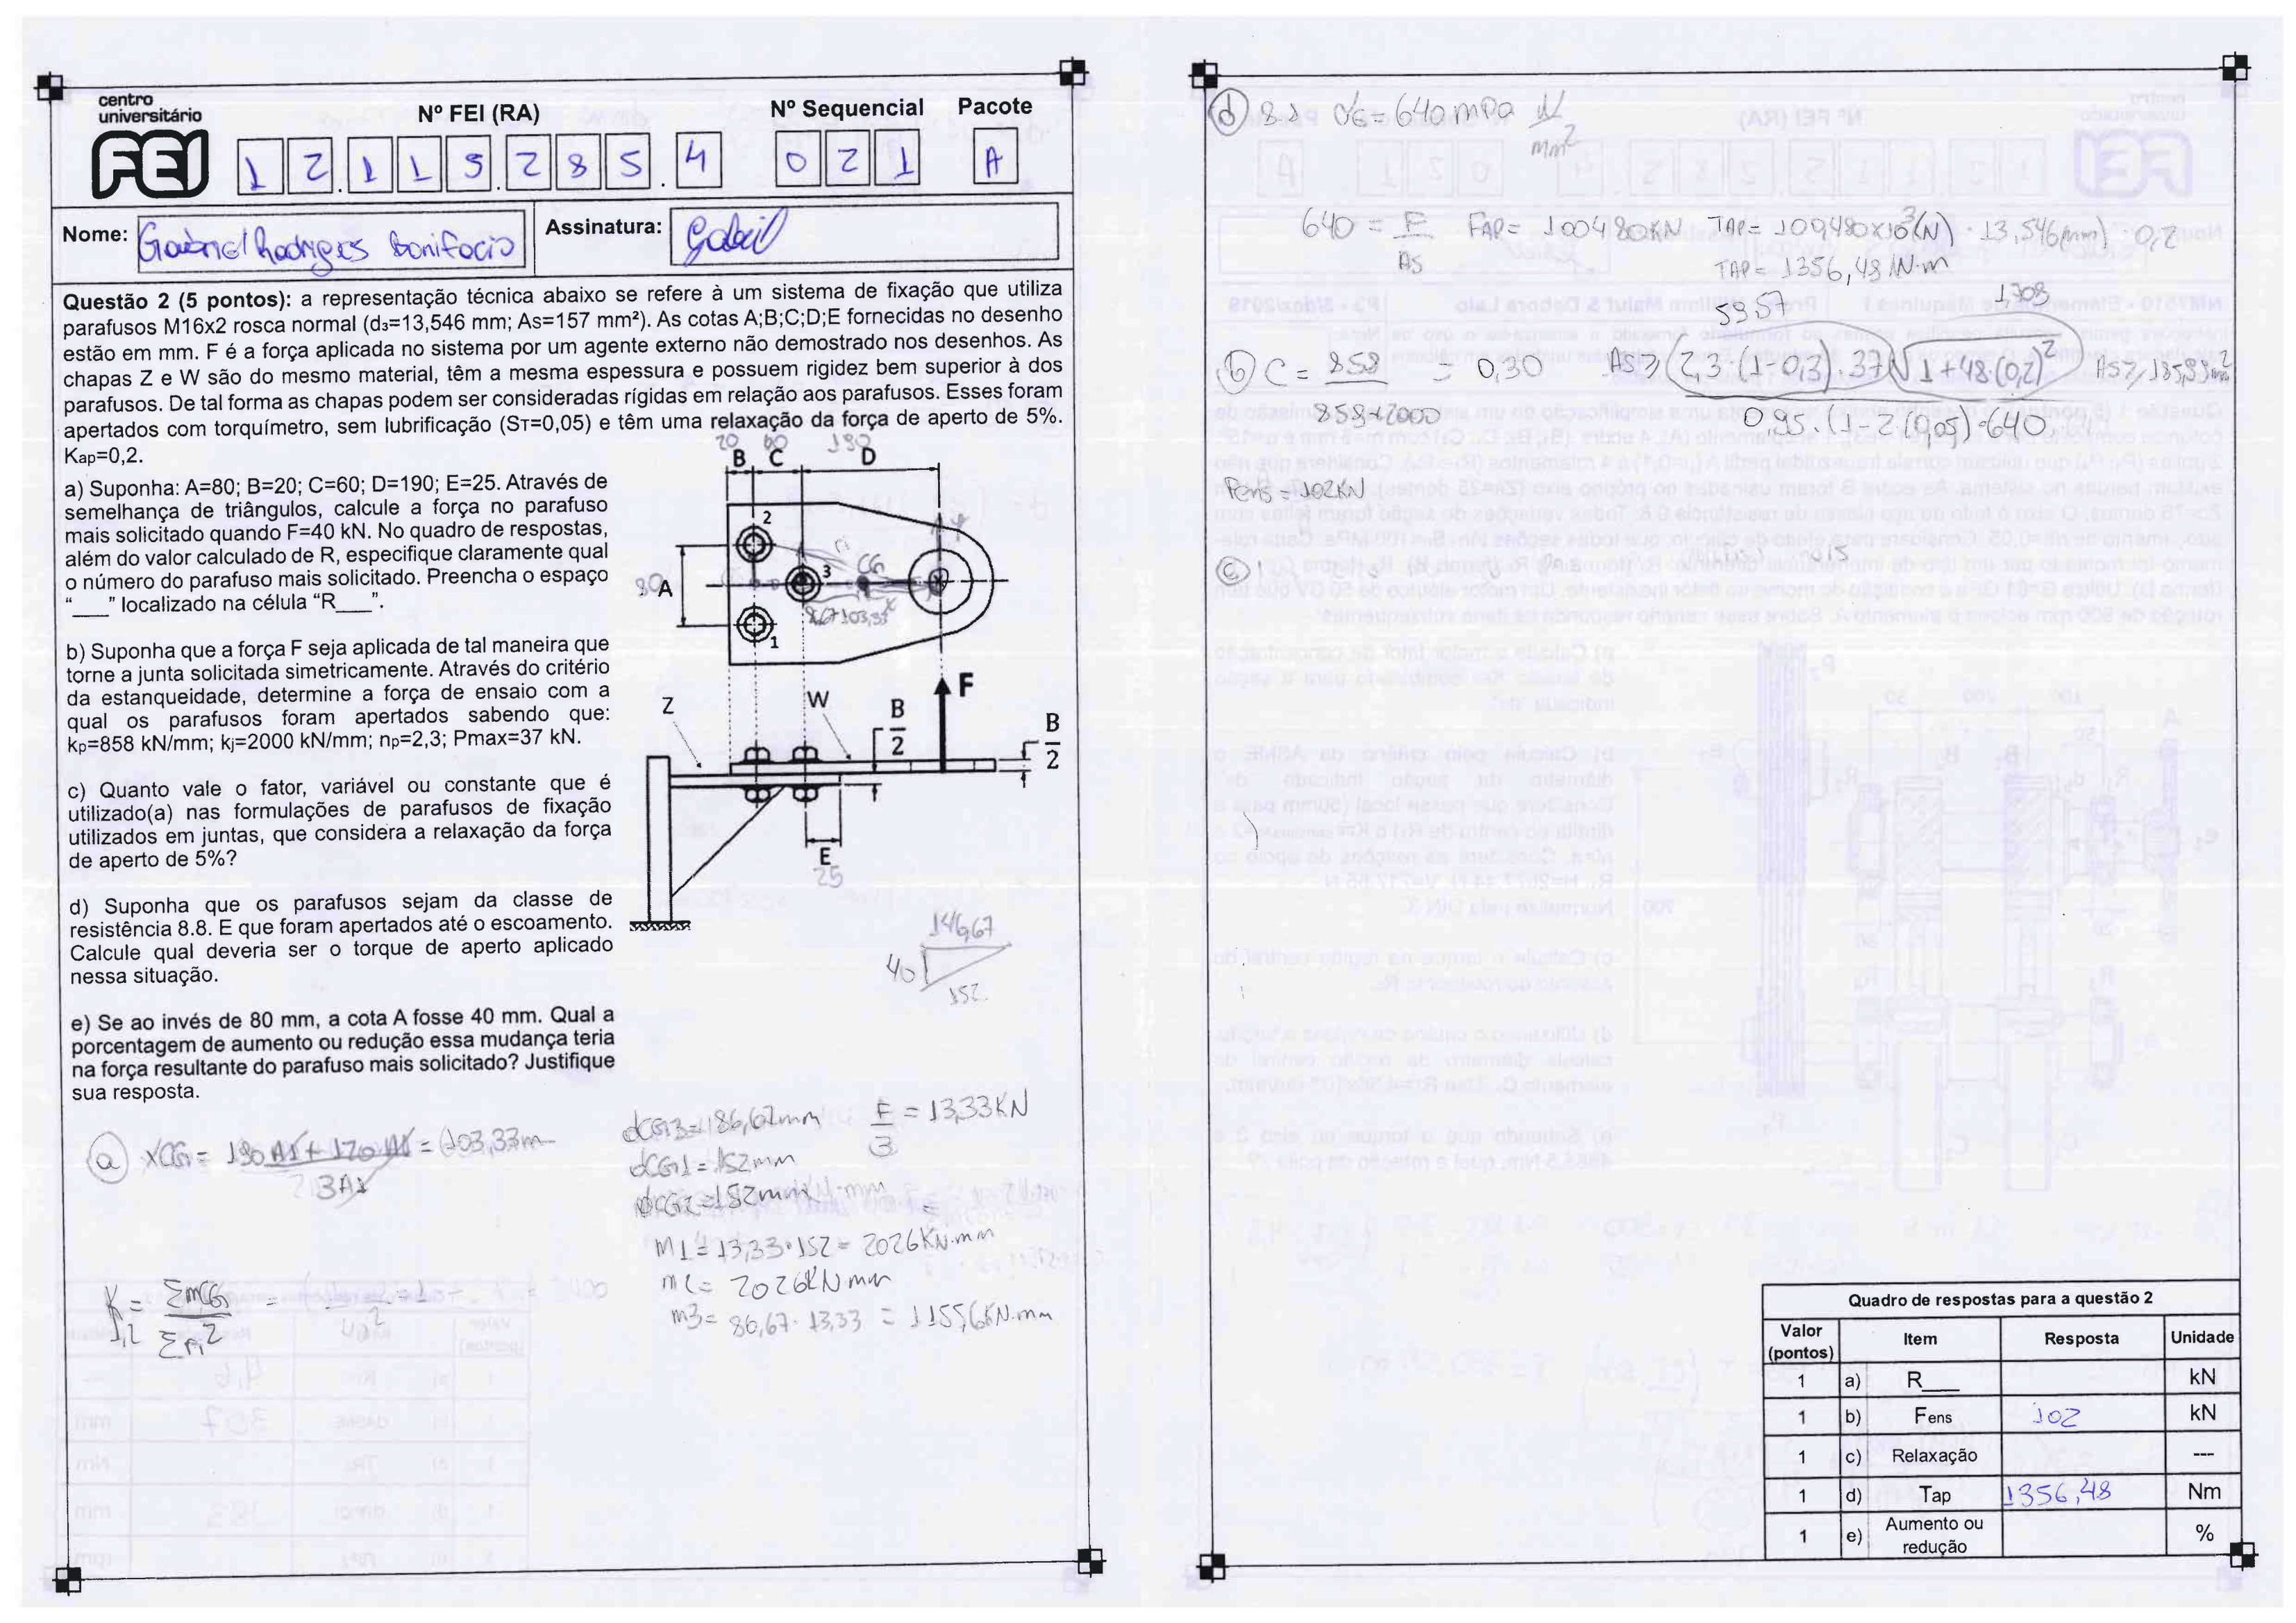 centro
universitário
FEI
Nº FEI (RA)
Nº Sequencial
Pacote
1 2 . 1 1 5 . 2 8 5 . 4
0 2 1
A
Nome:
Gabriel Rodrigues Bonifacio
Assinatura:
Gabriel
Questão 2 (5 pontos): a representação técnica abaixo se refere à um sistema de fixação que utiliza
parafusos M16x2 rosca normal (d₃=13,546 mm; As=157 mm²). As cotas A;B;C;D;E fornecidas no desenho
estão em mm. F é a força aplicada no sistema por um agente externo não demostrado nos desenhos. As
chapas Z e W são do mesmo material, têm a mesma espessura e possuem rigidez bem superior à dos
parafusos. De tal forma as chapas podem ser consideradas rígidas em relação aos parafusos. Esses foram
apertados com torquímetro, sem lubrificação (Sт=0,05) e têm uma relaxação da força de aperto de 5%.
Kap=0,2.
a) Suponha: A=80; B=20; C=60; D=190; E=25. Através de
semelhança de triângulos, calcule a força no parafuso
mais solicitado quando F=40 kN. No quadro de respostas,
além do valor calculado de R, especifique claramente qual
o número do parafuso mais solicitado. Preencha o espaço
"___" localizado na célula "R___".
b) Suponha que a força F seja aplicada de tal maneira que
torne a junta solicitada simetricamente. Através do critério
da estanqueidade, determine a força de ensaio com a
qual os parafusos foram apertados sabendo que:
kp=858 kN/mm; kj=2000 kN/mm; np=2,3; Pmax=37 kN.
c) Quanto vale o fator, variável ou constante que é
utilizado(a) nas formulações de parafusos de fixação
utilizados em juntas, que considera a relaxação da força
de aperto de 5%?
d) Suponha que os parafusos sejam da classe de
resistência 8.8. E que foram apertados até o escoamento.
Calcule qual deveria ser o torque de aperto aplicado
nessa situação.
e) Se ao invés de 80 mm, a cota A fosse 40 mm. Qual a
porcentagem de aumento ou redução essa mudança teria
na força resultante do parafuso mais solicitado? Justifique
sua resposta.
20 60 190
B C D
2
80 A
3
CG
1
86,67 103,33
F
Z
W
B
2
B
2
E
25
146,67
40
152
a) XCG = 190 A1 + 120 A1 = 103,33m
3A1
dCG3 = 86,67mm
F = 13,33KN
3
dCG1 = 152mm
dCG2 = 152mm
M1 = 13,33 . 152 = 2026KN.mm
m2 = 2026KN.mm
m3 = 86,67 . 13,33 = 1155,6KN.mm
K = ΣmCG =
1,2 Σri²
d) 8.8 σe = 640 mPa N
mm²
640 = F
As
FAP = 100480KN
TAP = 100480x10³(N) . 13,546(mm) . 0,2
TAP = 1356,48 N.m
59,57
1,708
b) C = 858 = 0,30
858+2000
As ≥ 2,3 . (1-0,3) . 37 √1+48.(0,2)²
0,95 . (1-2.(0,05) . 640
As ≥ 185,99mm²
Fens = 102KN
c)
Quadro de respostas para a questão 2
Valor (pontos) Item Resposta Unidade
1 a) R___ kN
1 b) Fens 102 kN
1 c) Relaxação ---
1 d) Tap 1356,48 Nm
1 e) Aumento ou redução %